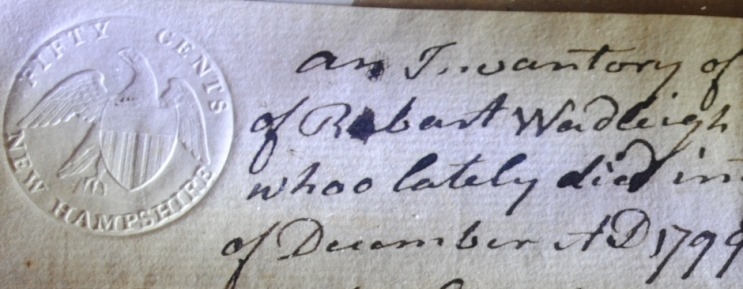 FIFTY CENTS
NEW HAMPSHIRE
an Invantory of
of Robart Wadleigh
whoo lately died in
of December AD 1799